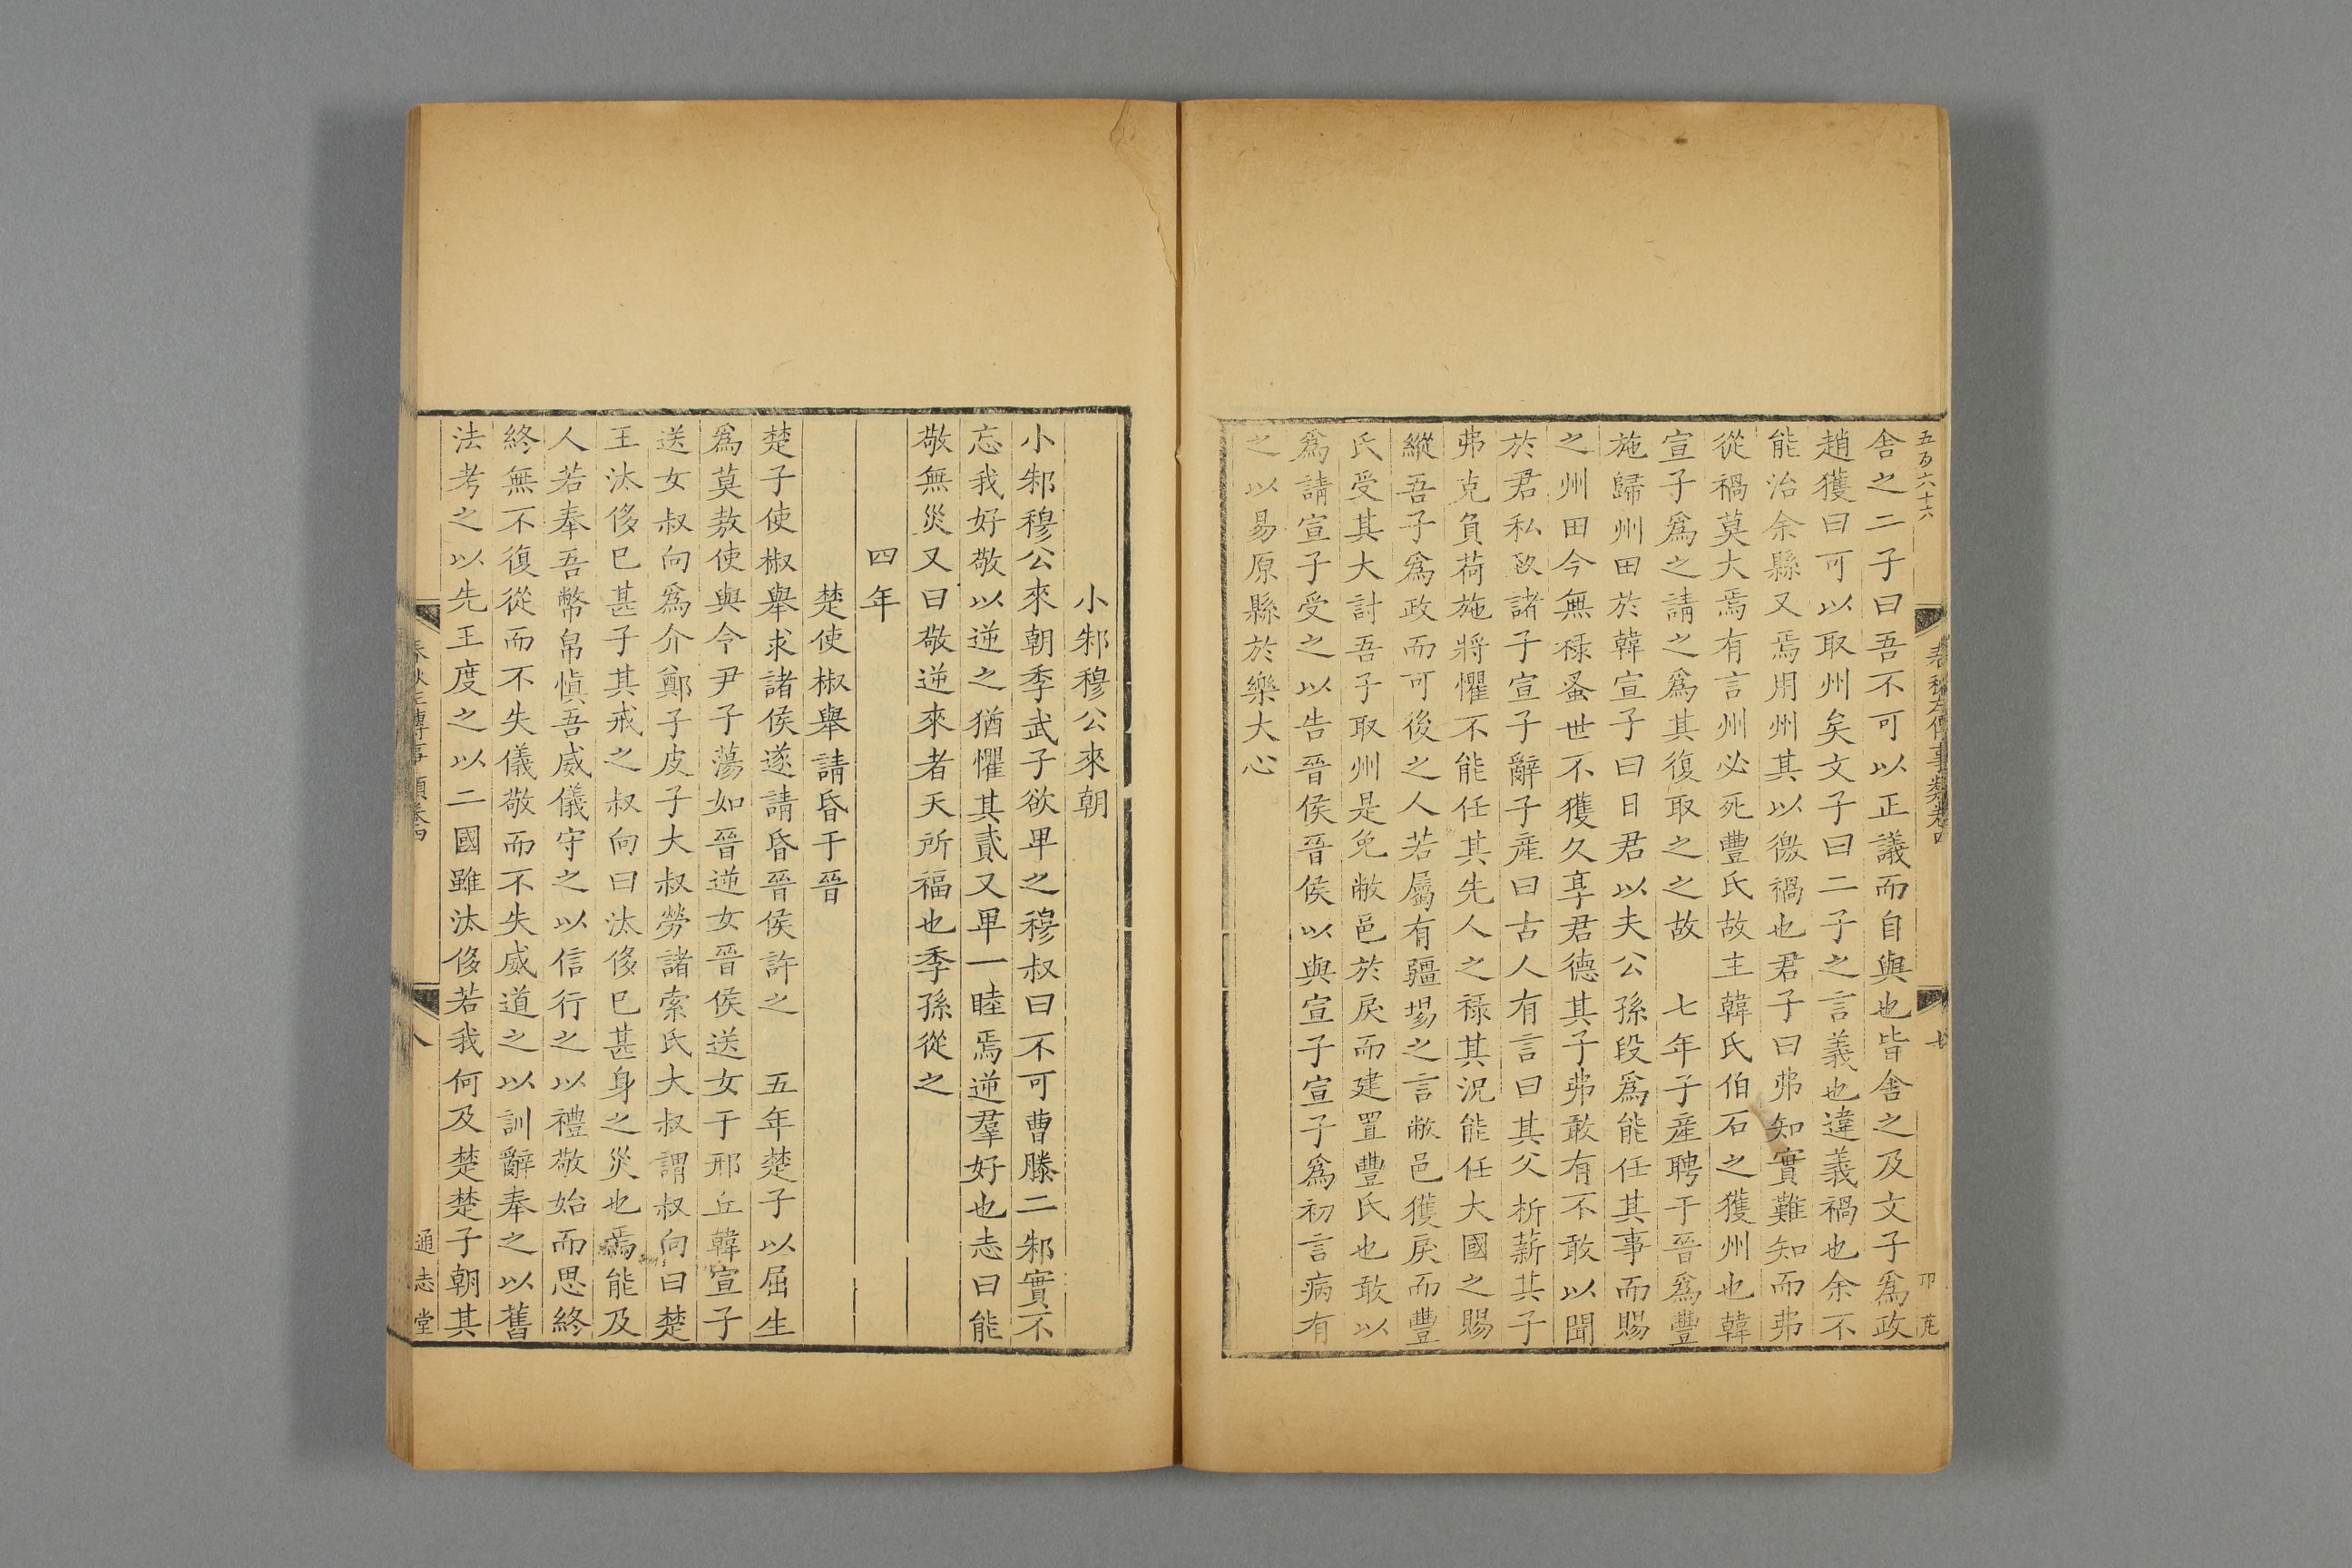 五百六十六
春秋左傳事類卷四
七
舍之二子曰吾不可以正議而自與也皆舍之及文子爲政
趙獲曰可以取州矣文子曰二子之言義也違義禍也余不
能治余縣又焉用州其以徼禍也君子曰弗知實難知而弗
從禍莫大焉有言州必死豐氏故主韓氏伯石之獲州也韓
宣子爲之請之爲其復取之之故　七年子產聘于晉爲豐
施歸州田於韓宣子曰日君以夫公孫段爲能任其事而賜
之州田今無祿蚤世不獲久享君德其子弗敢有不敢以聞
於君私致諸子宣子辭子產曰古人有言曰其父析薪其子
弗克負荷施將懼不能任其先人之祿其況能任大國之賜
縱吾子爲政而可後之人若屬有疆埸之言敝邑獲戾而豐
氏受其大討吾子取州是免敝邑於戾而建置豐氏也敢以
爲請宣子受之以告晉侯晉侯以與宣子宣子爲初言病有
之以易原縣於樂大心
小邾穆公來朝
小邾穆公來朝季武子欲卑之穆叔曰不可曹滕二邾實不
忘我好敬以逆之猶懼其貳又卑一睦焉逆羣好也志曰能
敬無災又曰敬逆來者天所福也季孫從之
四年
楚使椒舉請昏于晉
楚子使椒舉求諸侯遂請昏晉侯許之　五年楚子以屈生
爲莫敖使與令尹子蕩如晉逆女晉侯送女于邢丘韓宣子
送女叔向爲介鄭子皮子大叔勞諸索氏大叔謂叔向曰楚
王汰侈已甚子其戒之叔向曰汰侈已甚身之災也焉能及
人若奉吾幣帛愼吾威儀守之以信行之以禮敬始而思終
終無不復從而不失儀敬而不失威道之以訓辭奉之以舊
法考之以先王度之以二國雖汰侈若我何及楚楚子朝其
春秋左傳事類卷四
八
通志堂